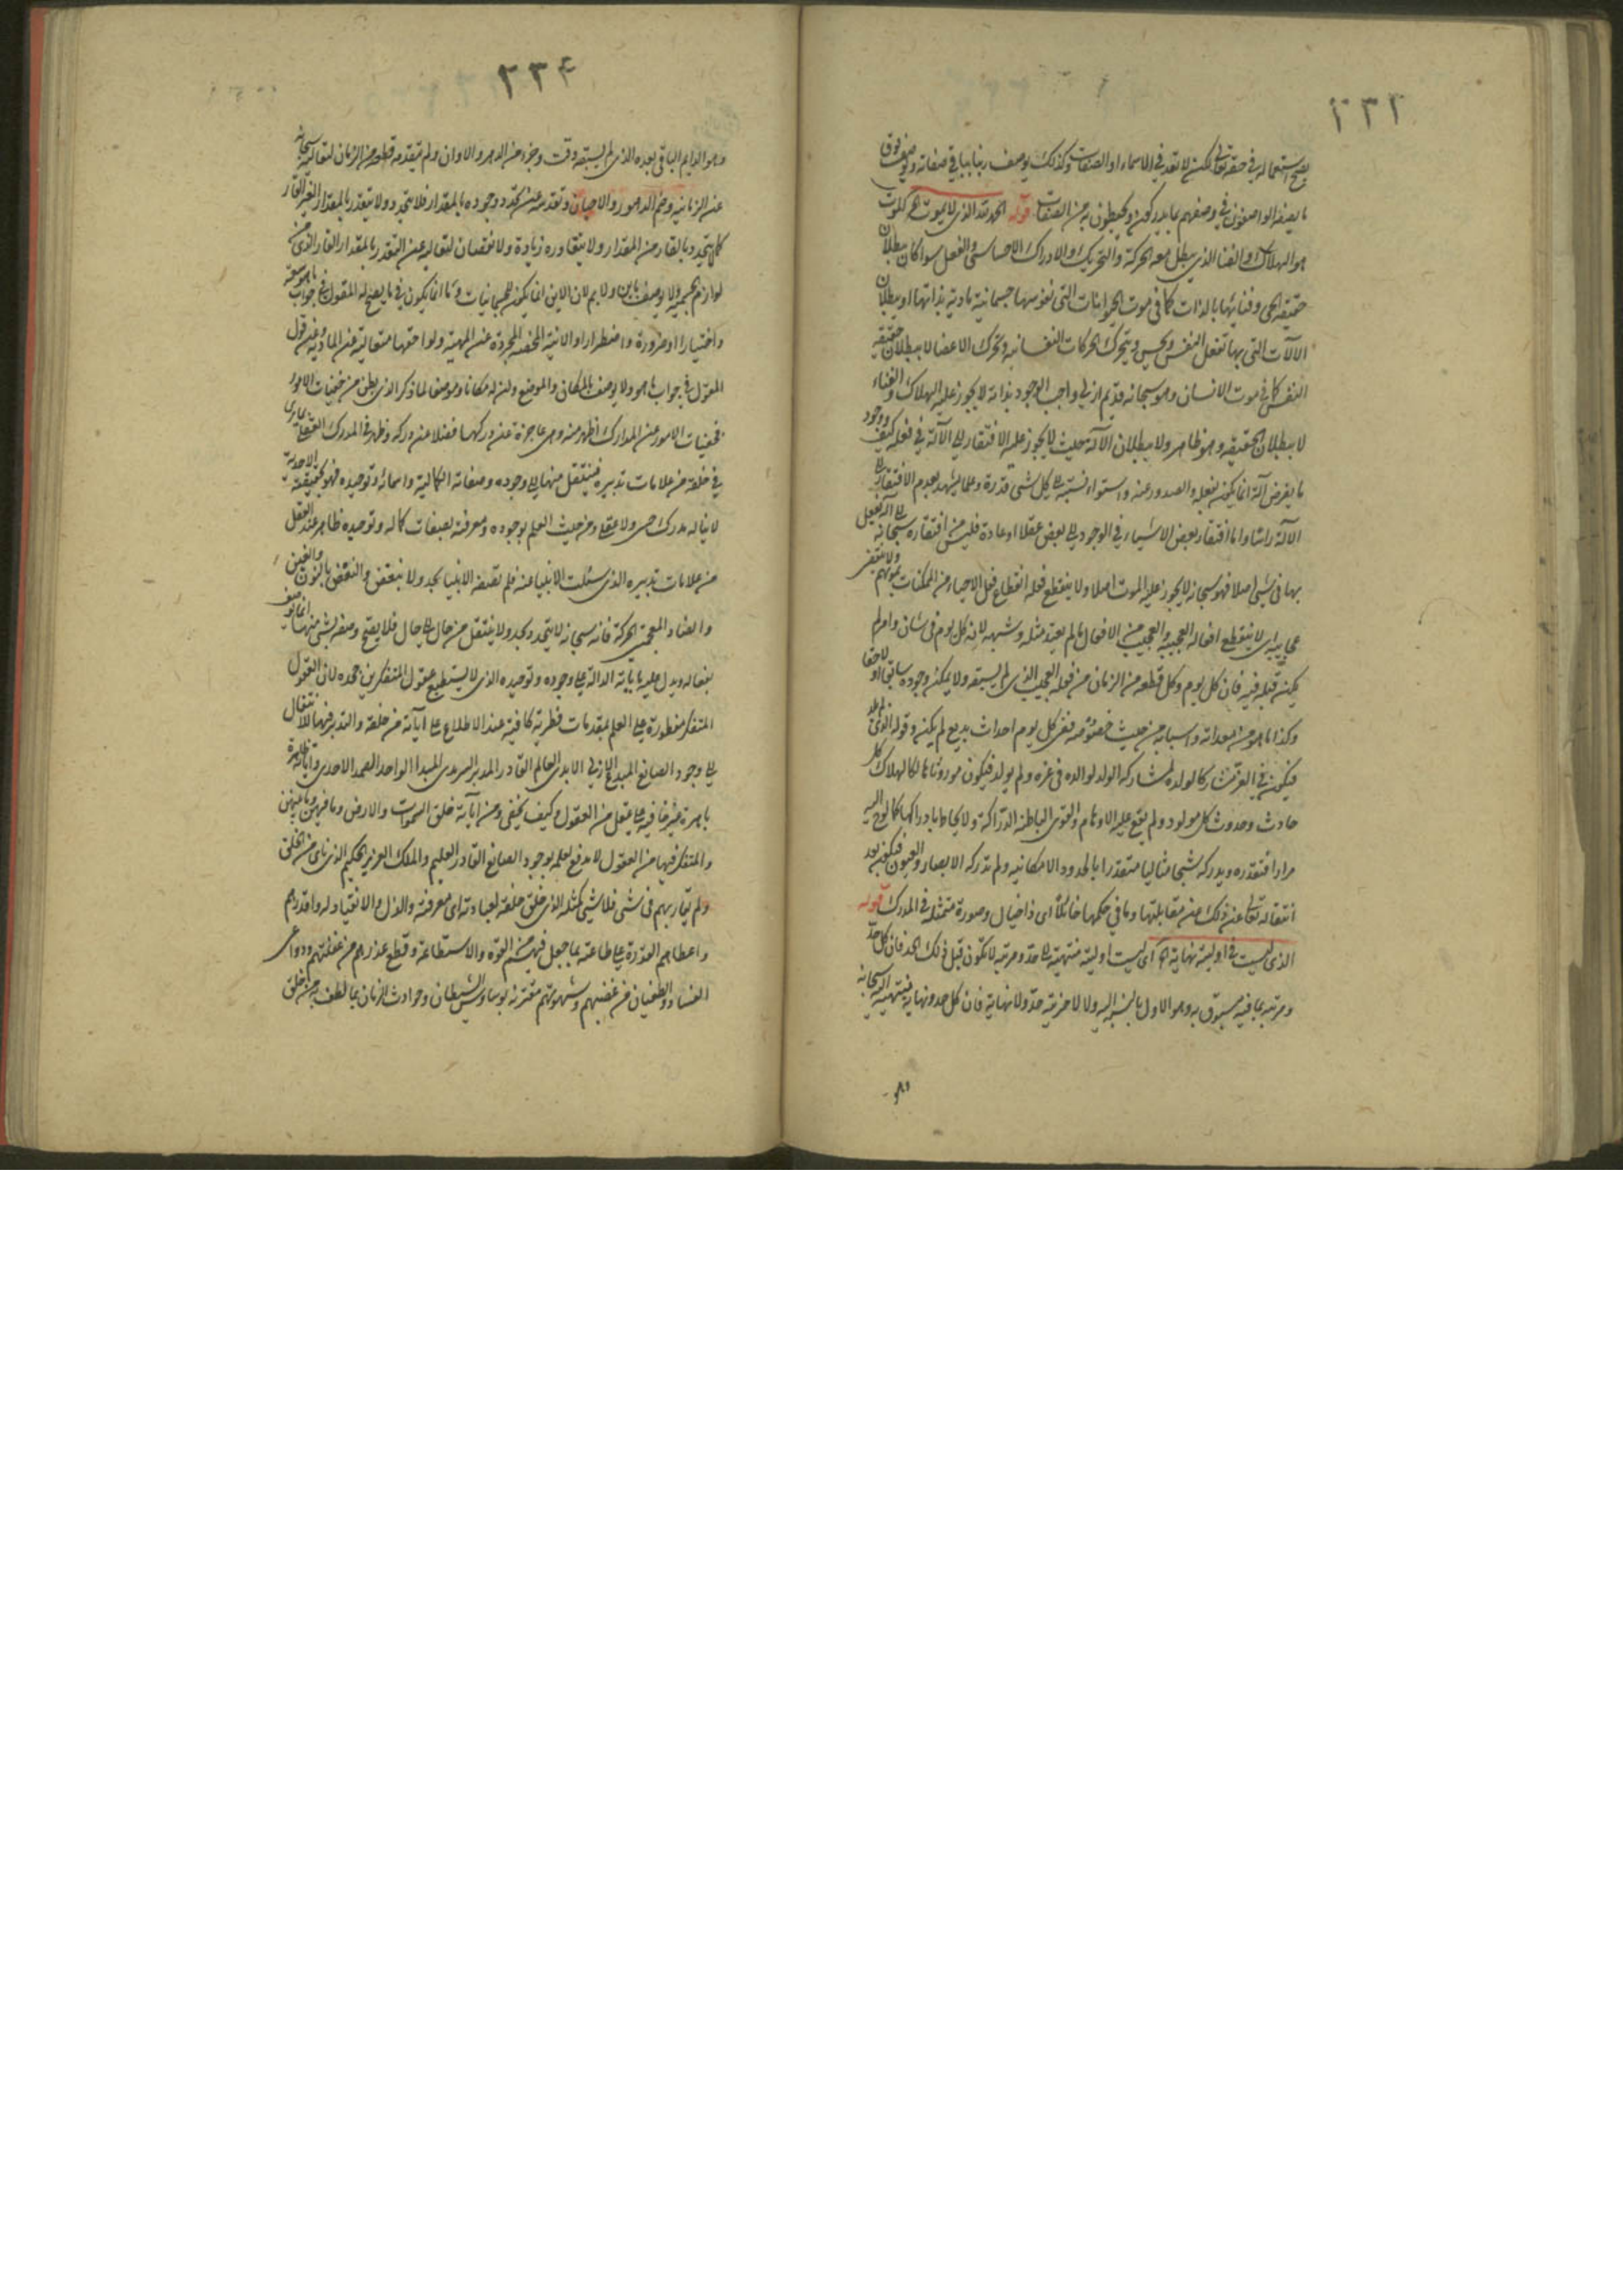 ٢٣٣
يصح استعماله في حقه تعالى لكن لا تعد في الاسماء او الصفات وكذلك يوصف ربنا بما في صفاته وتوصف فوق
ما يصفه الواصفون في وصفهم بما يدركون ويحيطون به من الصفات قوله الحمد لله الذي لا يموت
هو الهلاك او الفناء الذي يبطل معه الحركة والتحريك او الادراك الاحساسي والفعل سواء كان ببطلان
حقيقة الحي وفنائها بالذات كما في موت الحيوانات التي نفوسها جسمانية مادية بذاتها او ببطلان
الآلات التي بها تفعل النفس وتحس ويتحرك الحركات النفسانية وتحرك الاعضاء لا ببطلان حقيقة
النفس كما في موت الانسان وهو سبحانه قديم ازلي واجب الوجود بذاته لا يجوز عليه الهلاك والفناء
لا ببطلان الحقيقة وهو ظاهر ولا ببطلان الآلة حيث لا يجوز عليه الافتقار الى الآلة في فعله كيف ووجود
ما يفرض آلة انما يكون بفعله والصدور عنه واستواء نسبته الى كل شيء قدرة وعلما يشهد بعدم الافتقار الى
الآلة راسا واما افتقار بعض الاشياء في الوجود الى بعض عقلا او عادة فليس من افتقاره سبحانه الى آلة يفعل
بها في شيء اصلا فهو سبحانه لا يجوز عليه الموت اصلا ولا ينقطع فعله انقطاع فعل الاحياء من الممكنات بموتهم ولا ينقضي
عجايبه اي لا ينقطع افعاله العجيبة والعجيب من الافعال ما لم يعهد مثله وشبهه لانه كل يوم في شان وامر لم
يكن قبله فيه فان كل يوم وكل قطعة من الزمان من فعله العجيب الذي لم يسبقه ولا يمكن وجوده سابقا او لاحقا
وكذا ما هو من معداته واسبابه من حيث خصوصه ففي كل يوم احداث بديع لم يكن وقوله الذي لم يلد
فيكون في العز مشاركا لولده لمشاركة الولد لوالده في عزه ولم يولد فيكون موروثا هالكا لهلاك كل
حادث وحدوث كل مولود ولم يقع عليه الاوهام والقوى الباطنة الدراكة ولا يحاط بادراكها
مرارا فتقدره ويدركه شبحا مثاليا متقدرا بالحدود الامكانية ولم تدركه الابصار والعيون فيكون بعد
انتقاله تعالى عن ذلك عن مقابلتها وما في حكمها خائلا اي ذا خيال وصورة متمثلة في المدرك قوله
الذي ليست في اوليته نهاية اي ليست اوليته منتهية الى حد ومرتبة لا تكون قبل ذلك الحد فان كل حد
ومرتبة بما فيه مسبوق به وهو الاول بالنسبة اليه ولا لآخريته حد ولا نهاية فان كل حد ونهاية فينتهي اليه سبحانه
وهو
٢٣٤
وهو الدايم الباقي بعده الذي لم يسبقه وقت وجزء من الدهر والاوان ولم يتقدمه قطعة من الزمان لتعاليه سبحانه
عن الزمانية وضم الدهور والاحيان وتقدسه عن تجدد وجوده بالمقدار فلا يتجدد ولا يتقدر بالمقدار الغير القار
كما لا يتحدد بالقار من المقدار ولا يتعاوره زيادة ولا نقصان لتعاليه عن التقدر بالمقدار القار الذي من
لوازم الجسمية ولا يوصف باين ولا بم لان الاين انما يكون للجسمانيات وما انما يكون في ما يصح له المقول في جواب ما هو
واختيارا او ضرورة واضطرارا والانية المحضة المجردة عن المهية ولواحقها متعالية عن المادية وعن قول
المقول في جواب ما هو ولا يوصف بالمكان والموضع ولذا وصفه لما ذكر الذي بطن من خفيات الامور
فخفيات الامور عن المدارك اظهر منه وهي عاجزة عن دركها فضلا عن دركه وظهر في المدرك العقلي بما يرى
في خلقه من علامات تدبيره فينتقل منها الى وجوده وصفاته الكمالية واسمائه وتوحيده فهو بحقيقته الاحدية
لا يناله مدرك حسي ولا عقلي ومن حيث العلم بوجوده ومعرفته بصفات كماله وتوحيده ظاهر عند العقل
من علامات تدبيره الذي سئلت الانبياء عنه فلم تصفه الانبياء بحد ولا بنقص والنقص بالنون والغين
والضاد المعجمتين الحركة فانه سبحانه لا يتحدد بحد ولا ينتقل من حال الى حال فلا يصح وصفه بشيء منها انما يوصف
بفعاله ويدل عليه بآياته الدالة على وجوده وتوحيده الذي لا يستطيع عقول المتفكرين جحده لان العقول
المتفكرة مفطورة على العلم بمقدمات فطرية كافية عند الاطلاع على آياته من خلقه والتدبر فيها للانتقال
الى وجود الصانع المبدع الازلي الابدي العالم القادر المدبر السرمدي المبدا الواحد الصمد الاحدي وآياته ظاهرة
باهرة غير خافية على عقل من العقول وكيف يخفى ومن آياته خلق السموات والارض وما فيهن وما بينهن
والمتفكر فيها من العقول لا مدفع لعلمه بوجود الصانع القادر العليم والملك العزيز الحكيم الذي ناى من الخلق
ولم يقاربهم في شيء فلا شيء كمثله الذي خلق خلقه لعبادته اي معرفته والذل والانقياد له واقدرهم
واعطاهم القدرة على طاعته بما جعل فيهم من القوة والاستطاعة وقطع عذرهم من غفلتهم ودواعي
الفساد والطغيان من غضبهم وشهوتهم مقترنة بوساوس الشيطان وحوادث الزمان بما لطف به من خلق